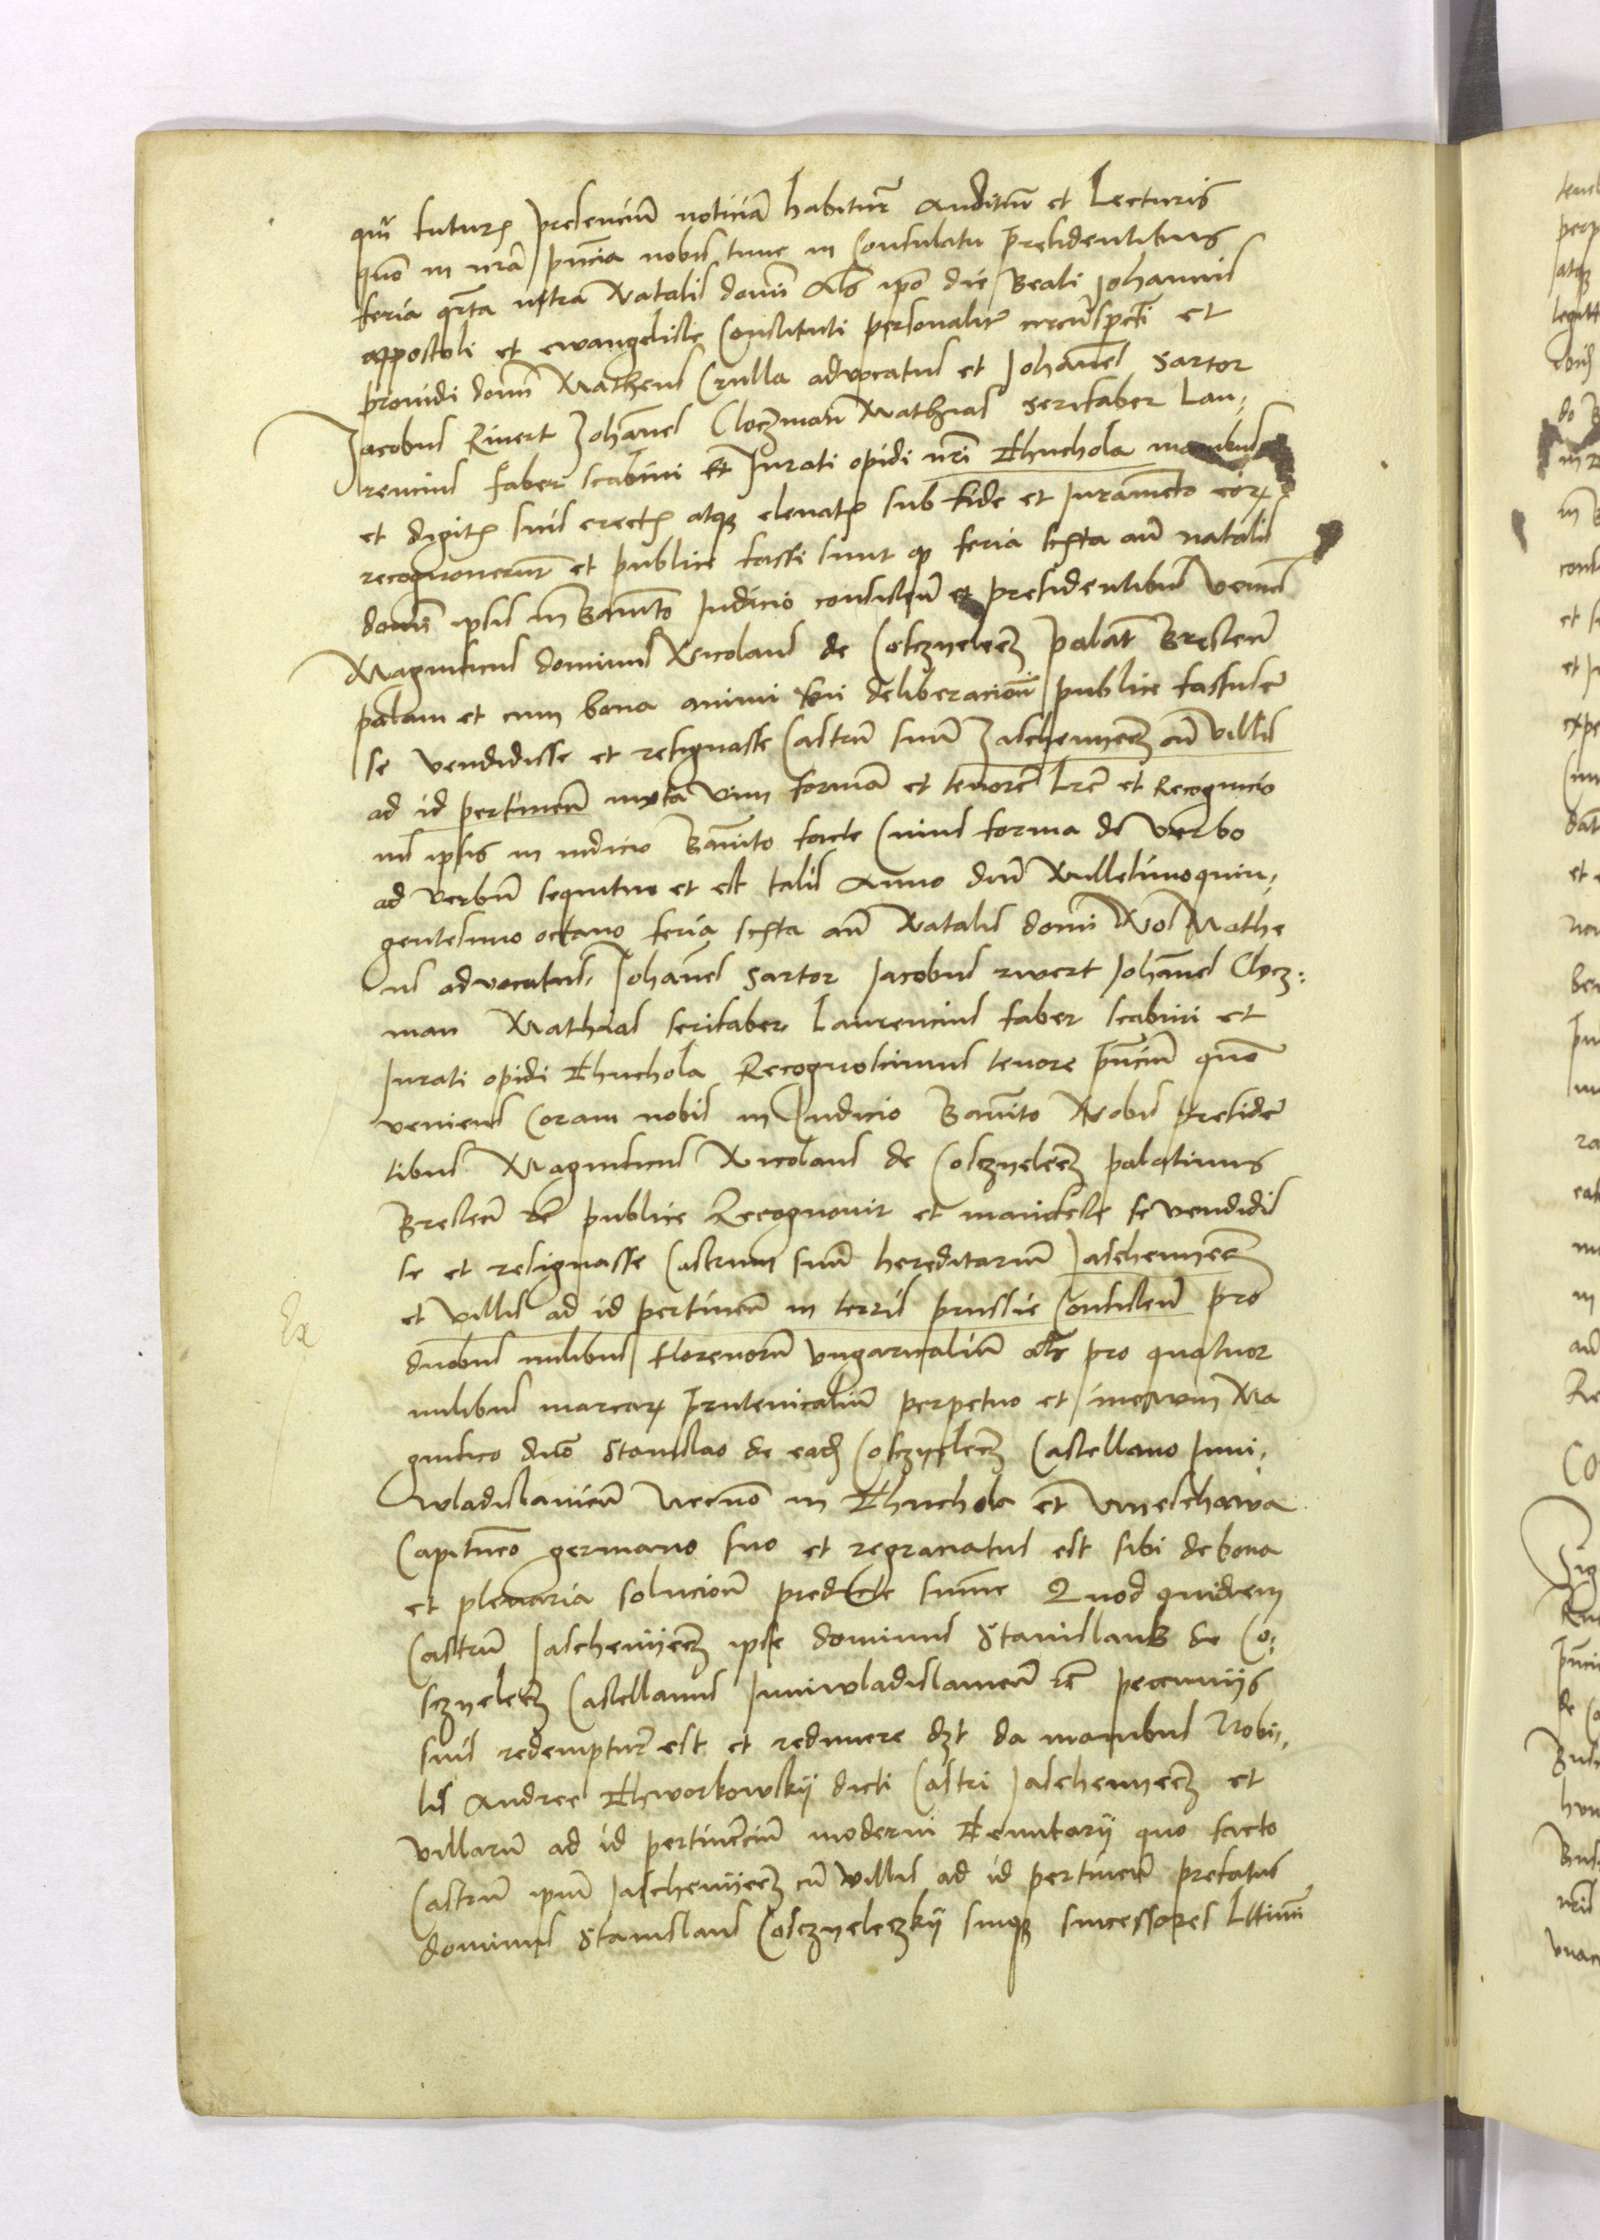 qm̄ futurꝫ presenciũ noticiã habiturꝫ auditur̃ et Lecturis
quõ in nrã pn̄cia nobis tunc in Consulatu p̄residentibus
feria qrta infra Natalis domī als ip̄o die Beati Johannis
appostoli et ewangeliste Constituti personalitr̃ circũspecti et
prouidi domī Matheus Crulla advocatus et Johañes Sartor
Jacobus Riwert Johañes Cloczman Mathias serifaber Lau-
rencius faber scabini et Jurati opidi nrī Thuchola manibus
et digitꝫ suis erectꝫ atqꝫ eleuatꝫ sub fide et Juramẽto eorꝫ
recognouerunt et publice fassi sunt qꝫ feria sexta añ natalis
domī ipsis in Bannito Judicio consisteñ et presidentibus veniens
Magnificus dominus Nicolaus de Cosczyelecz palat̃ Bresteñ
palam et cum bona animi sui deliberacioñ publice fassus est
se vendidisse et resignasse Castrũ suũ Jaschenyecz cũ villis
ad id pertineñ iuxta vim formã et tenorẽ lrẽ et Recognicio
nis ipsis in iudicio Bannito facte Cuius forma de verbo
ad verbũ sequitur et est talis Anno dnī Millesimoquin-
gentesimo octauo feria sexta añ Natalis domī Nos Mathe
us advocatus Johañes Sartor Jacobus riwert Johañes Clocz-
man Mathias serifaber Laurencius faber scabini et
Jurati opidi Thuchola Recognoscimus tenore pn̄ciũ quõ
veniens Coram nobis in Judicio Bannito Nobis preside
tibus Magnificus Nicolaus de Cosczyelecz palatinus
Bresteñ rc̃ publice Recognouit et manifeste se vendidis
se et resignasse Castrum suũ hereditariũ Jaschenyecz
et villis ad id pertineñ in terris prussie Consisteñ pro
duobus milibus florenorũ vngaricaliũ als pro quatuor
milibus marcarꝫ prutenicaliũ perpetuo et in ewum Ma
gnifico dnõ Stanislao de eadꝫ Cosczyelecz Castellano Juni-
wladislauieñ Necnõ in Thuchola et Swyeschawa
Capitneo germano suo et regraciatus est sibi de bona
et plenaria solucioñ predicte sum̃e Quod quidem
Castrũ Jaschenyecz ipse dominus Stanislaus de Co-
sczyelecz Castellanus Juniwladislauieñ rc̃ pecuniis
suis redempturꝫ est et redimere dꝫt da manibus Nobi-
lis Andree Thworkowskij dicti Castri Jaschenyecz et
villarũ ad id pertinẽciũ moderni Tenutarij quo facto
Castrũ ip̄m Jaschenyecz cũ villis ad id pertineñ prefatus
dominus Stanislaus Cosczyeleczkij suiqꝫ successores Lttimi